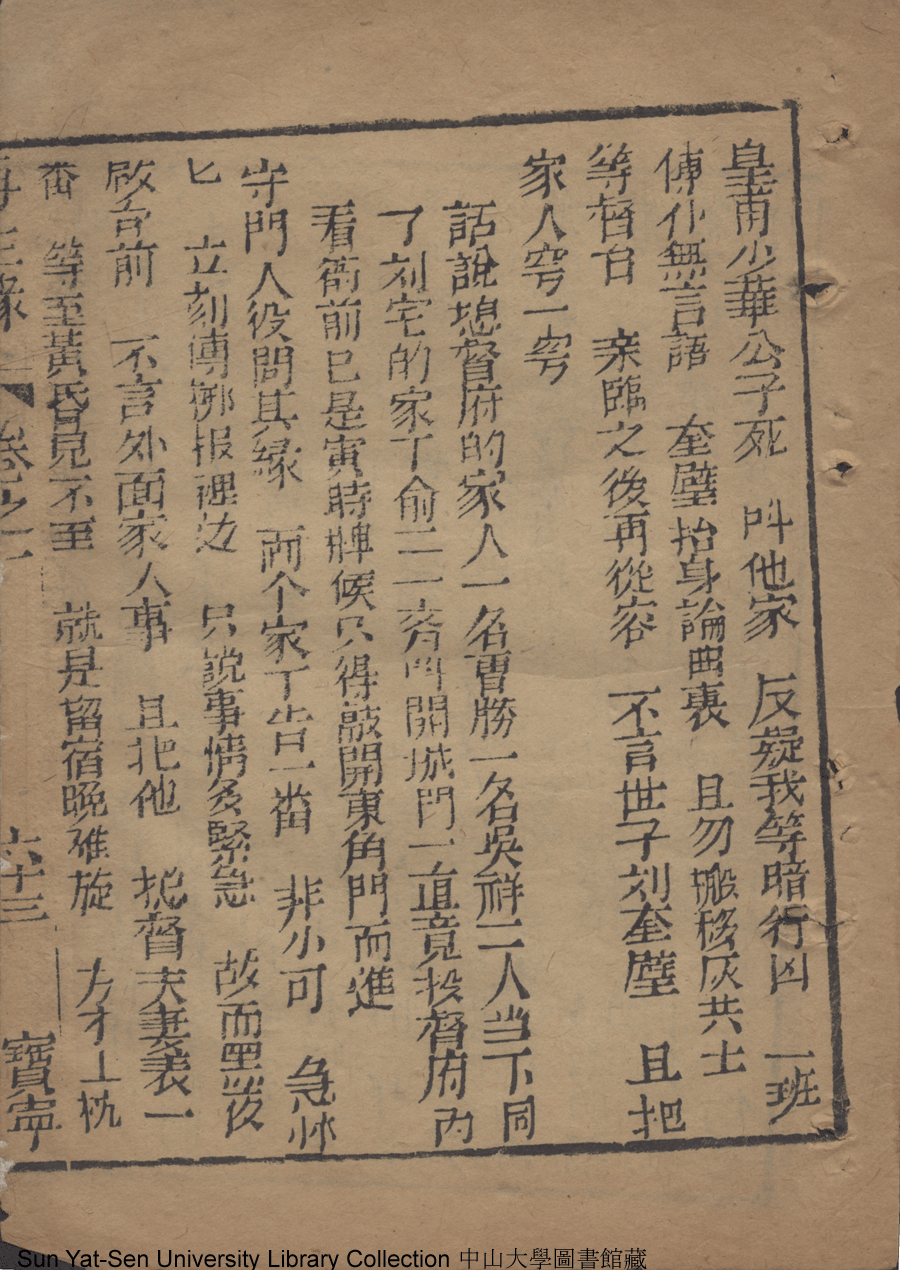 皇甫少華公子死 叫他家 反疑我等暗行凶 一班
傳仆無言語 奎璧抬身論曲衷 且勿搬移灰共土
等督台 亲臨之後再從容 不言世子刘奎璧 且把
家人雩一雩
話說捴督府的家人一名曹勝一名吳祥二人当下同
了刘宅的家丁俞二一齊叫開城門一直竟投督府內
看衙前已是寅時牌候只得敲開東角門而進
守門人役問其縁 两个家丁告一畨 非小可 急忙
匕 立刻傳梆报裡边 只說事情多緊急 故而黑夜
啟台前 不言外面家人事 且把他 捴督夫妻表一
畨 等至黃昏見不至 就是留宿晚难旋 方才上枕
再生縁 卷之一 六十三 寶寧
Sun Yat-Sen University Library Collection 中山大學圖書館藏